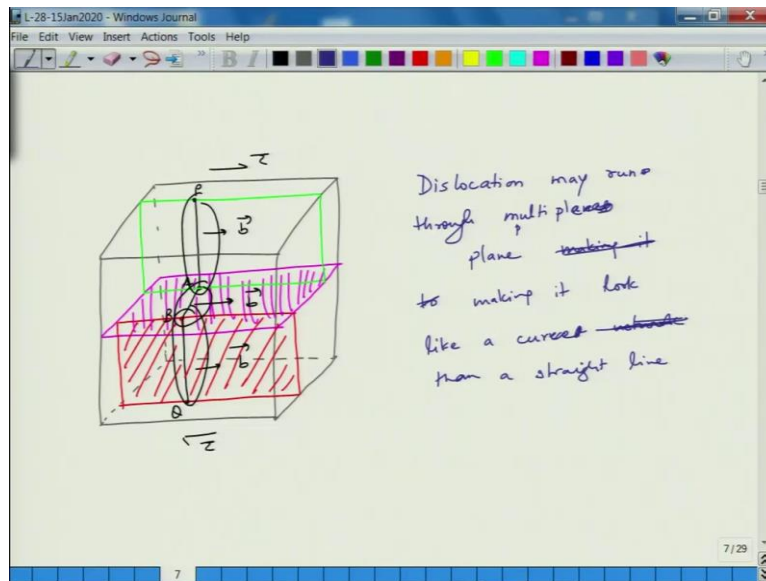 L-28-15Jan2020 - Windows Journal
File Edit View Insert Actions Tools Help
B I
τ
P
b
A
b
B
b
Q
τ
Dislocation may run
through multiple
plane making it
to making it look
like a curve
than a straight line
7/29
7